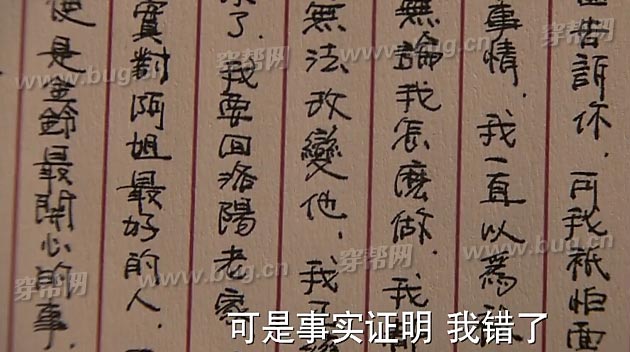 告訴你，可我祇怕
事情，我一直以為
無論我怎麼做．我
無法改變他，我
了．我要回洛陽老家
實對阿姐最好的人．
是金鈴最開心的事．
可是事实证明 我错了
穿帮网
www.bug.cn
穿帮网
www.bug.cn
穿帮网
www.bug.cn
穿帮网
www.bug.cn